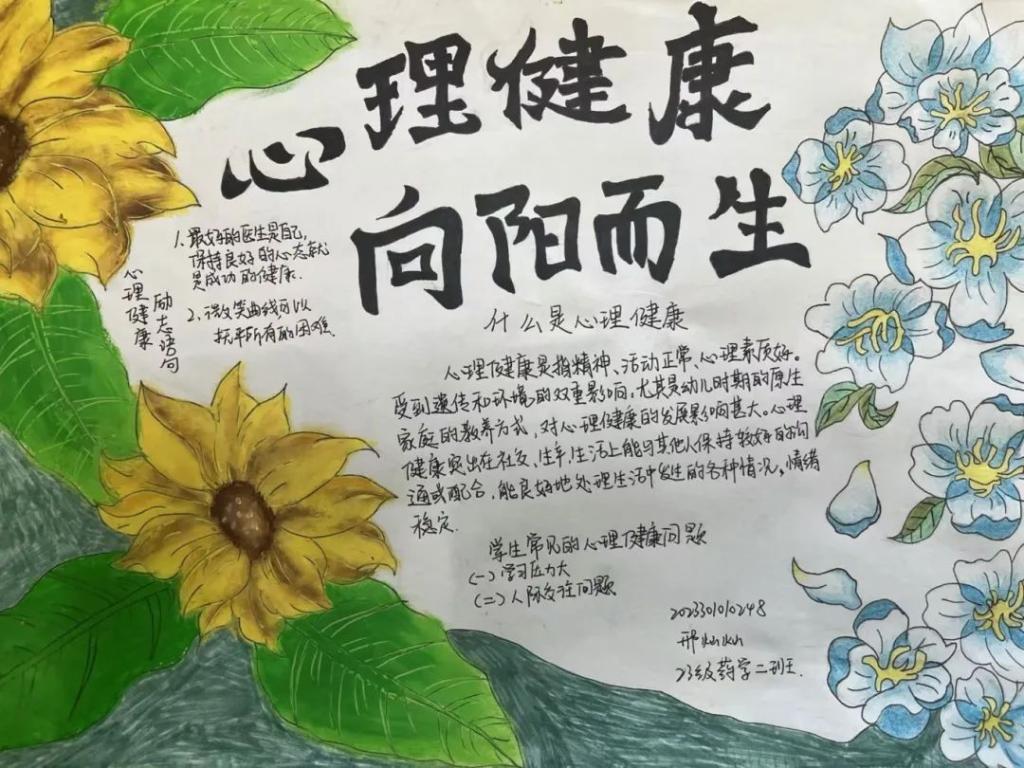 心理健康
向阳而生
心理健康
励志语句
1. 最好的医生是自己,
保持良好的心态就
是成功的健康.
2、微笑曲线可以
抚平所有的困难
什么是心理健康
心理健康是指精神、活动正常、心理素质好。
受到遗传和环境的双重影响,尤其是幼儿时期的原生
家庭的教养方式,对心理健康的发展影响甚大。心理
健康突出在社交、生平,生活上能与其他人保持较好的沟
通或配合,能良好地处理生活中发生的各种情况,情绪
稳定.
学生常见的心理健康问题
(一)学习压力大
(二)人际交往问题
邢
23级药学二班